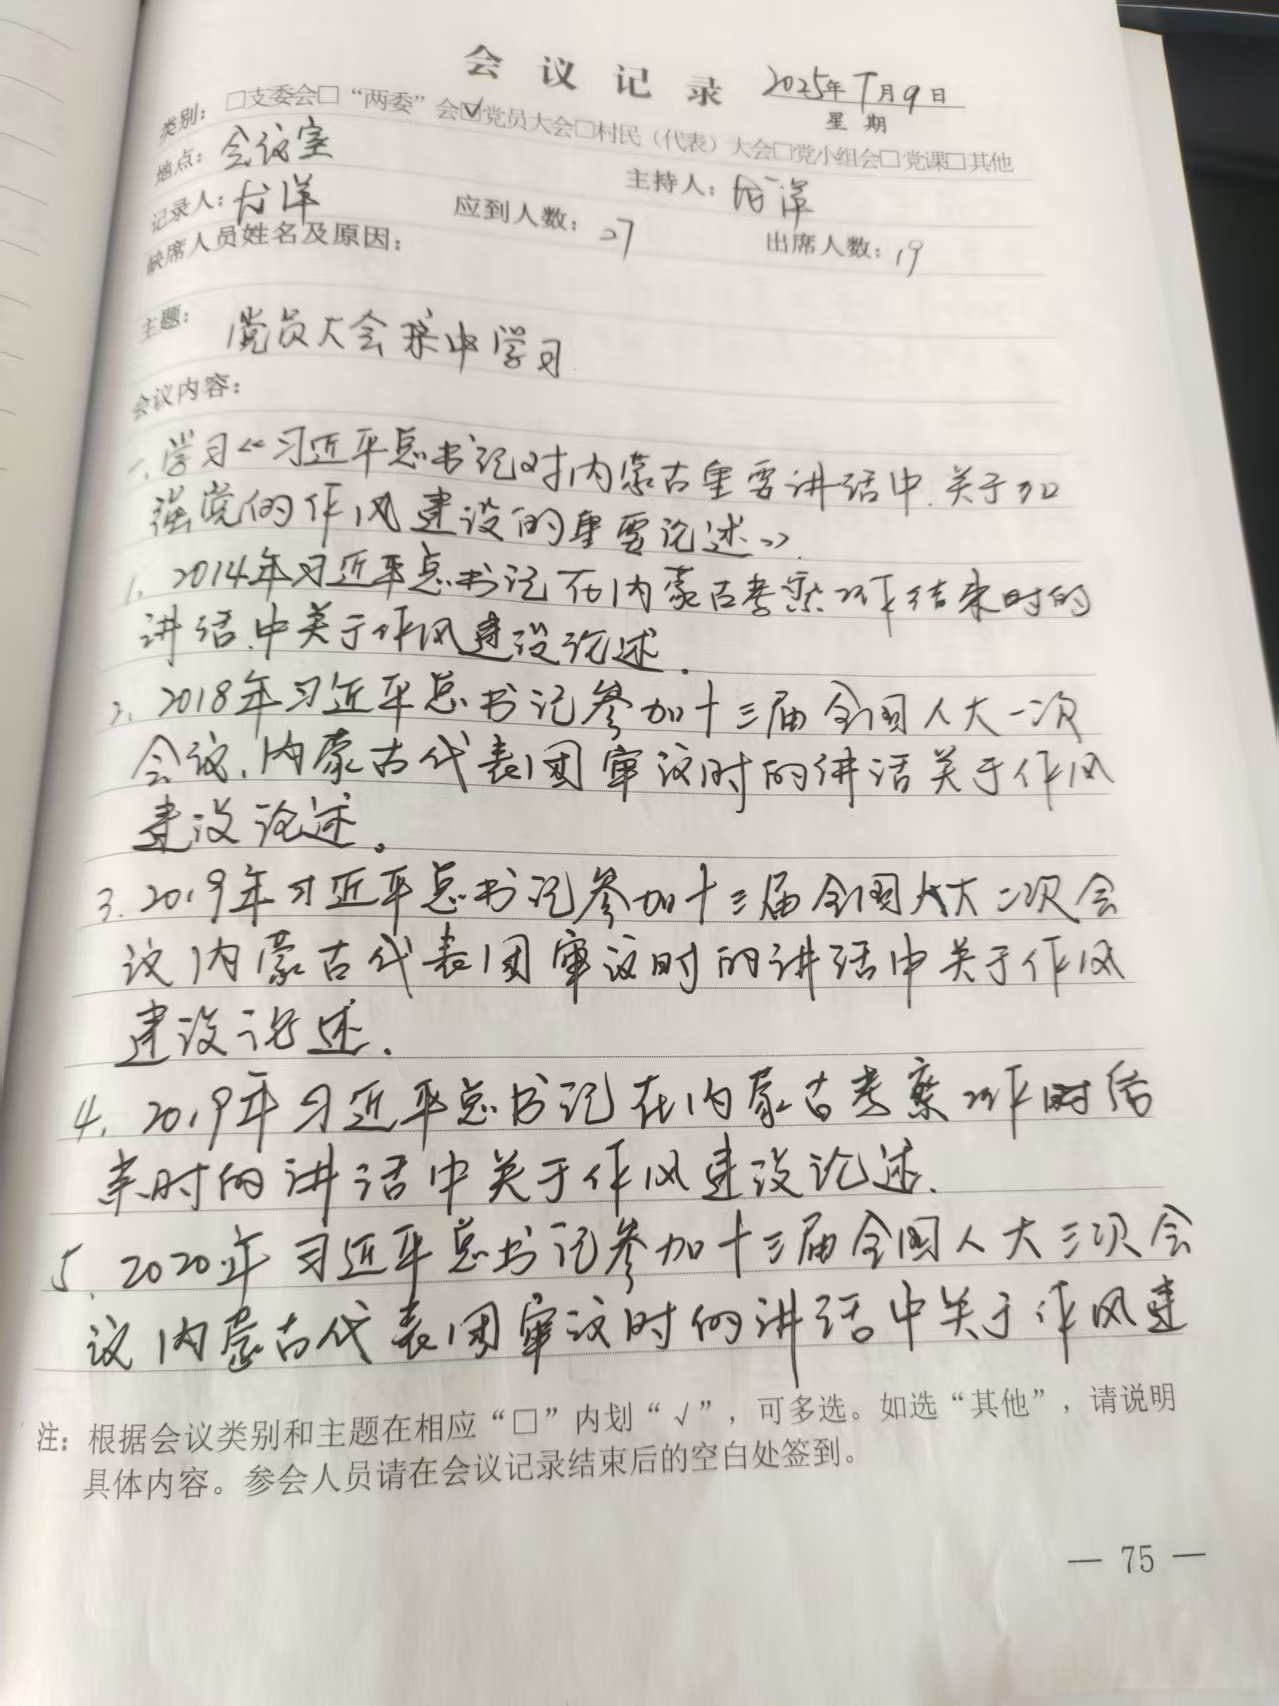 会议记录 2025年7月9日
星期
类别：□支委会□“两委”会☑党员大会□村民（代表）大会□党小组会□党课□其他
地点：会议室
记录人： 洋 应到人数：27 主持人： 洋 出席人数：19
缺席人员姓名及原因：
主题：党员大会集中学习
会议内容：
一、学习《习近平总书记对内蒙古重要讲话中.关于加
强党的作风建设的重要论述》.
1、2014年习近平总书记在内蒙古考察工作结束时的
讲话.中关于作风建设论述.
2、2018年习近平总书记参加十三届全国人大一次
会议.内蒙古代表团审议时的讲话关于作风
建设论述。
3.2019年习近平总书记参加十三届全国人大二次会
议内蒙古代表团审议时的讲话中关于作风
建设论述.
4、2019年习近平总书记在内蒙古考察工作时结
束时的讲话中关于作风建设论述.
5、2020年习近平总书记参加十三届全国人大三次会
议内蒙古代表团审议时的讲话中关于作风建
注：根据会议类别和主题在相应“□”内划“√”，可多选。如选“其他”，请说明
具体内容。参会人员请在会议记录结束后的空白处签到。
— 75 —